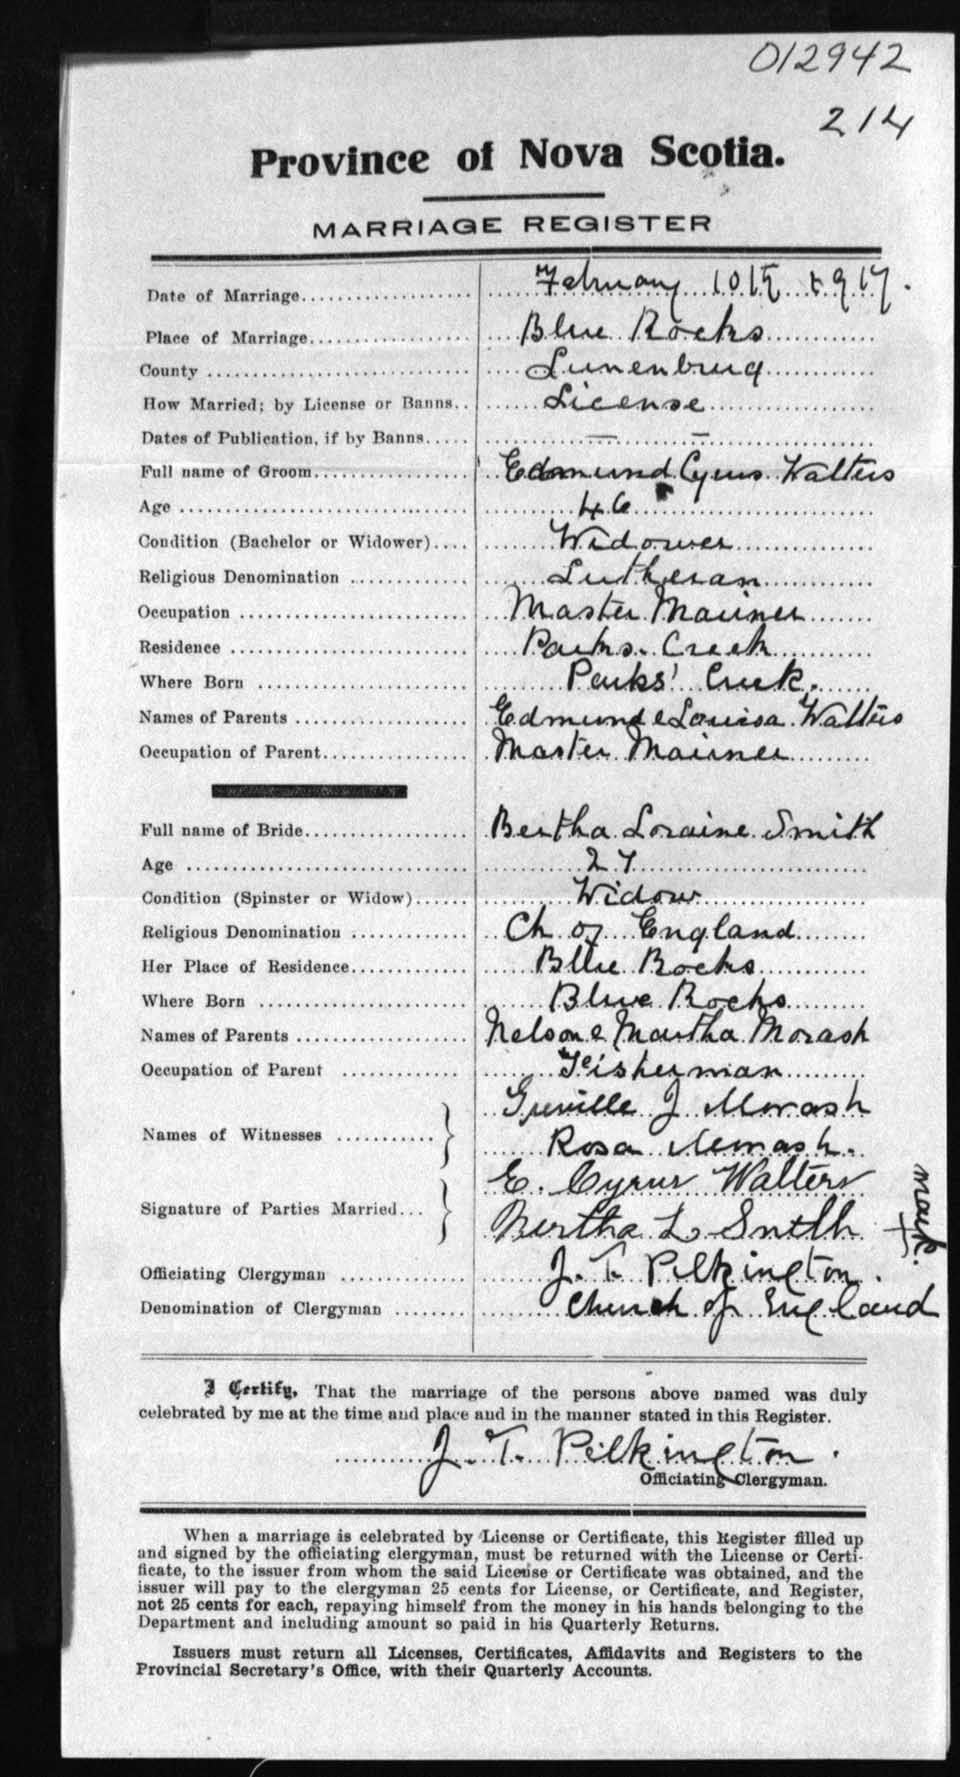 012942
214
Province of Nova Scotia.
MARRIAGE REGISTER
Date of Marriage.................... February 10th 1917.
Place of Marriage................... Blue Rocks
County .............................. Lunenburg
How Married; by License or Banns.. License
Dates of Publication, if by Banns..... — —
Full name of Groom.................. Edmund Cyrus Walters
Age ................................. 46
Condition (Bachelor or Widower).... Widower
Religious Denomination ............. Lutheran
Occupation .......................... Master Mariner
Residence ........................... Parks Creek
Where Born ........................ Parks' Creek.
Names of Parents .................... Edmund & Louisa Walters
Occupation of Parent................. Master Mariner
Full name of Bride................... Bertha Loraine Smith
Age ................................. 27
Condition (Spinster or Widow)...... Widow
Religious Denomination ............. Ch of England
Her Place of Residence.............. Blue Rocks
Where Born ........................ Blue Rocks
Names of Parents .................... Nelson & Martha Morash
Occupation of Parent ............. Fisherman
Names of Witnesses ........... } Greville J Morash
Rosa Morash.
Signature of Parties Married... } E. Cyrus Walters
Bertha L Smith X mark.
Officiating Clergyman .............. J. T. Pilkington.
Denomination of Clergyman ........ Church of England
I Certify, That the marriage of the persons above named was duly
celebrated by me at the time and place and in the manner stated in this Register.
J. T. Pilkington.
Officiating Clergyman.
When a marriage is celebrated by License or Certificate, this Register filled up
and signed by the officiating clergyman, must be returned with the License or Certi-
ficate, to the issuer from whom the said License or Certificate was obtained, and the
issuer will pay to the clergyman 25 cents for License, or Certificate, and Register,
not 25 cents for each, repaying himself from the money in his hands belonging to the
Department and including amount so paid in his Quarterly Returns.
Issuers must return all Licenses, Certificates, Affidavits and Registers to the
Provincial Secretary's Office, with their Quarterly Accounts.